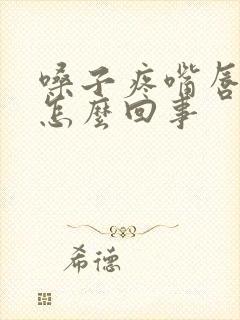 嗓子疼嘴唇
怎麼回事
希德